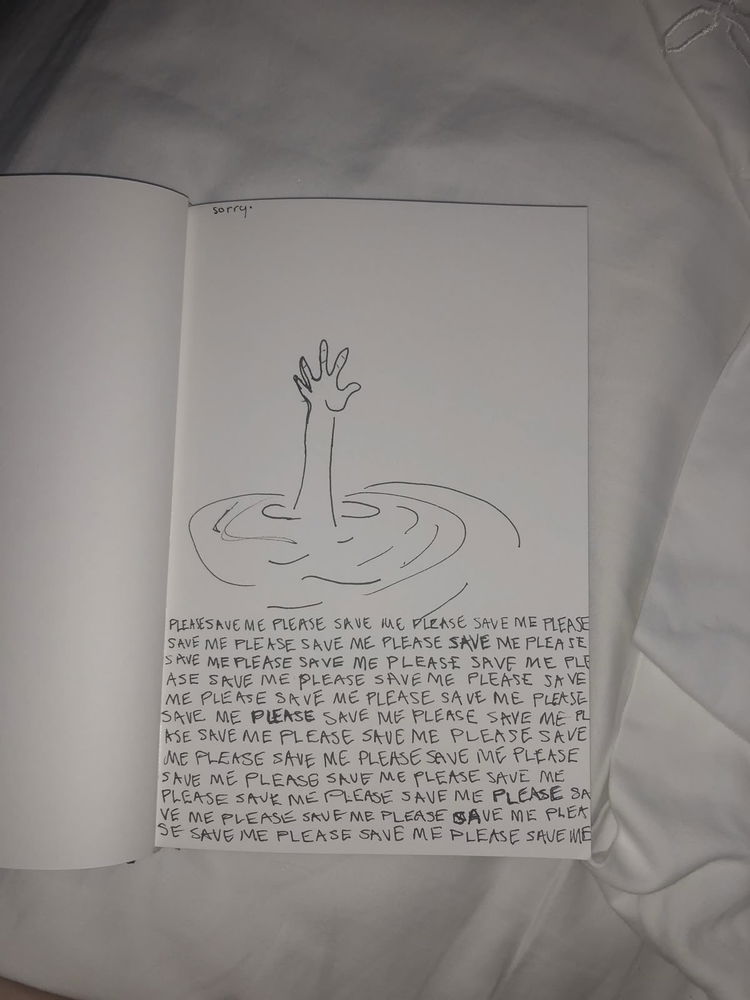 sorry.
PLEASE SAVE ME PLEASE SAVE ME PLEASE SAVE ME PLEASE
SAVE ME PLEASE SAVE ME PLEASE SAVE ME PLEASE
SAVE ME PLEASE SAVE ME PLEASE SAVE ME PLE
ASE SAVE ME PLEASE SAVE ME PLEASE SAVE
ME PLEASE SAVE ME PLEASE SAVE ME PLEASE
SAVE ME PLEASE SAVE ME PLEASE SAVE ME PL
ASE SAVE ME PLEASE SAVE ME PLEASE SAVE
ME PLEASE SAVE ME PLEASE SAVE ME PLEASE
SAVE ME PLEASE SAVE ME PLEASE SAVE ME
PLEASE SAVE ME PLEASE SAVE ME PLEASE SA
VE ME PLEASE SAVE ME PLEASE SAVE ME PLEA
SE SAVE ME PLEASE SAVE ME PLEASE SAVE ME